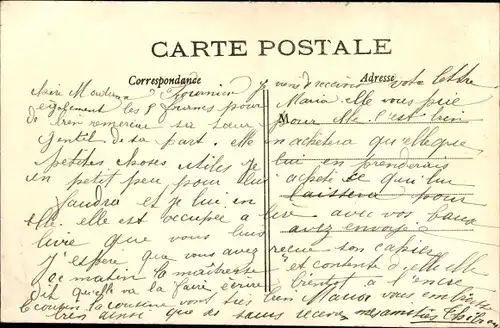 CARTE POSTALE
Correspondance Adresse
Chère Madame Fournier je viens de recevoir votre lettre
également les 5 francs pour Maria elle vous prie
de bien remercier sa sœur pour elle c'est bien
M
gentil de sa part. elle en achètera quelque
petites choses utiles Je lui en prenderais
un petit peu pour lui acheté ce qui lui
faudra et je lui en laissera pour
elle. elle est occupée a lire avec vos beaux
livre que vous lui avez envoyé
J'espère que vous avez recue son cahier
ce matin la maîtresse et contente d'elle elle
dit qu'elle va la faire écrire bientot a l'encre
Maria vous embrasse
bien ainsi que